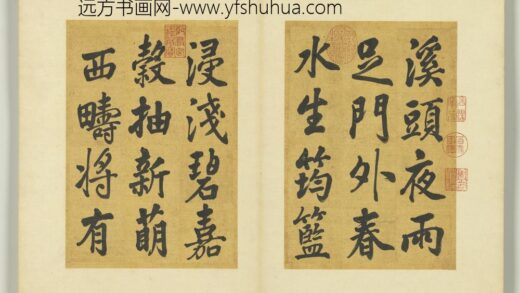 远方书画网-www.yfshuhua.com
溪頭夜雨
足門外春
水生筠籃
浸淺碧嘉
穀抽新萌
西疇将有